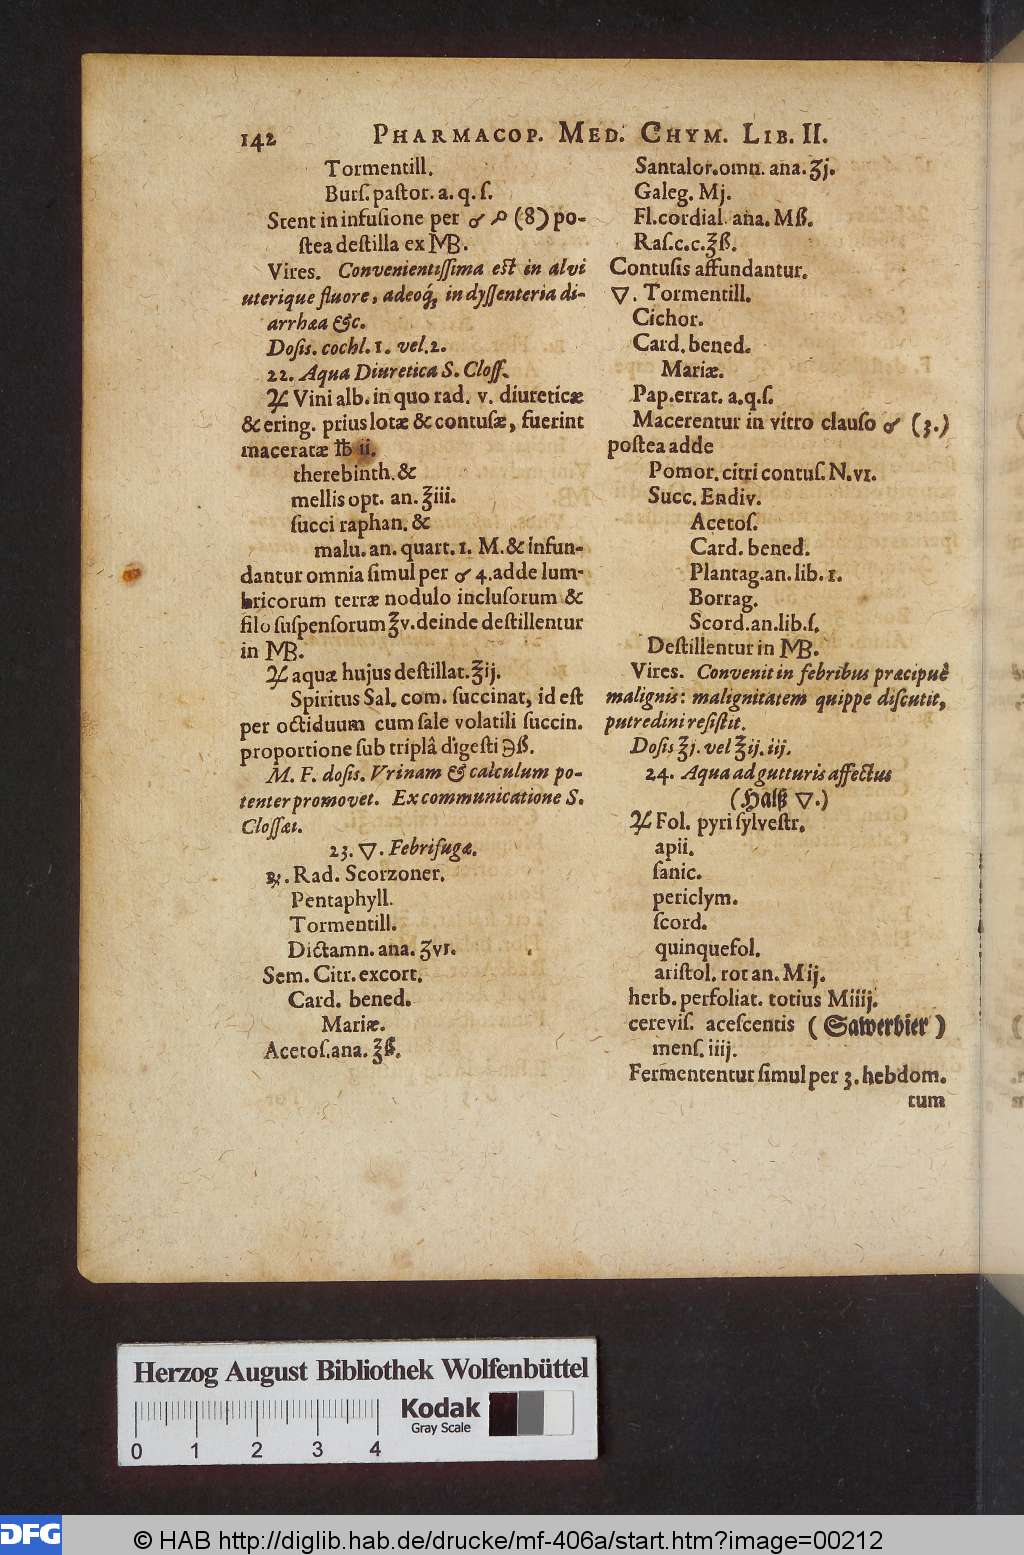 142 PHARMACOP. MED. CHYM. LIB. II.
Tormentill.
Burſ. paſtor. a. q. ſ.
Stent in infuſione per ♂ (8) po-
ſtea deſtilla ex MB.
Vires. Convenientiſſima eſt in alvi
uterique fluore, adeoq́; in dyſſenteria di-
arrhæa &c.
Doſis. cochl. 1. vel. 2.
22. Aqua Diuretica S. Cloſſ.
♃ Vini alb. in quo rad. v. diureticæ
& ering. prius lotæ & contuſæ, fuerint
maceratæ ℔ ii.
therebinth. &
mellis opt. an. ℥iii.
ſucci raphan. &
malu. an. quart. 1. M. & infun-
dantur omnia ſimul per ♂ 4. adde lum-
bricorum terræ nodulo incluſorum &
filo ſuſpenſorum ℥v. deinde deſtillentur
in MB.
♃ aquæ hujus deſtillat. ℥ij.
Spiritus Sal. com. ſuccinat, id eſt
per octiduum cum ſale volatili ſuccin.
proportione ſub triplâ digeſti ℈ß.
M. F. doſis. Vrinam & calculum po-
tenter promovet. Ex communicatione S.
Cloſſæi.
23. ▽. Febrifugæ.
℞. Rad. Scorzoner.
Pentaphyll.
Tormentill.
Dictamn. ana. ʒvi.
Sem. Citr. excort.
Card. bened.
Mariæ.
Acetoſ. ana. ℥ß.
Santalor. omn. ana. ʒj.
Galeg. Mj.
Fl. cordial. ana. Mß.
Raſ. c. c. ℥ß.
Contuſis affundantur.
▽. Tormentill.
Cichor.
Card. bened.
Mariæ.
Pap. errat. a. q. ſ.
Macerentur in vitro clauſo ♂ (3.)
poſtea adde
Pomor. citri contuſ. N. vi.
Succ. Endiv.
Acetoſ.
Card. bened.
Plantag. an. lib. 1.
Borrag.
Scord. an. lib. ſ.
Deſtillentur in MB.
Vires. Convenit in febribus præcipuè
malignis: malignitatem quippe diſcutit,
putredini reſiſtit.
Doſis ℥j. vel ℥ij. iij.
24. Aqua ad gutturis affectus
(Halß ▽.)
♃ Fol. pyri ſylveſtr.
apii.
ſanic.
periclym.
ſcord.
quinquefol.
ariſtol. rotan. Mij.
herb. perfoliat. totius Miiij.
cereviſ. aceſcentis (Sawerbier)
menſ. iiij.
Fermententur ſimul per 3. hebdom.
cum
Herzog August Bibliothek Wolfenbüttel
Kodak
Gray Scale
0 1 2 3 4
DFG
© HAB http://diglib.hab.de/drucke/mf-406a/start.htm?image=00212